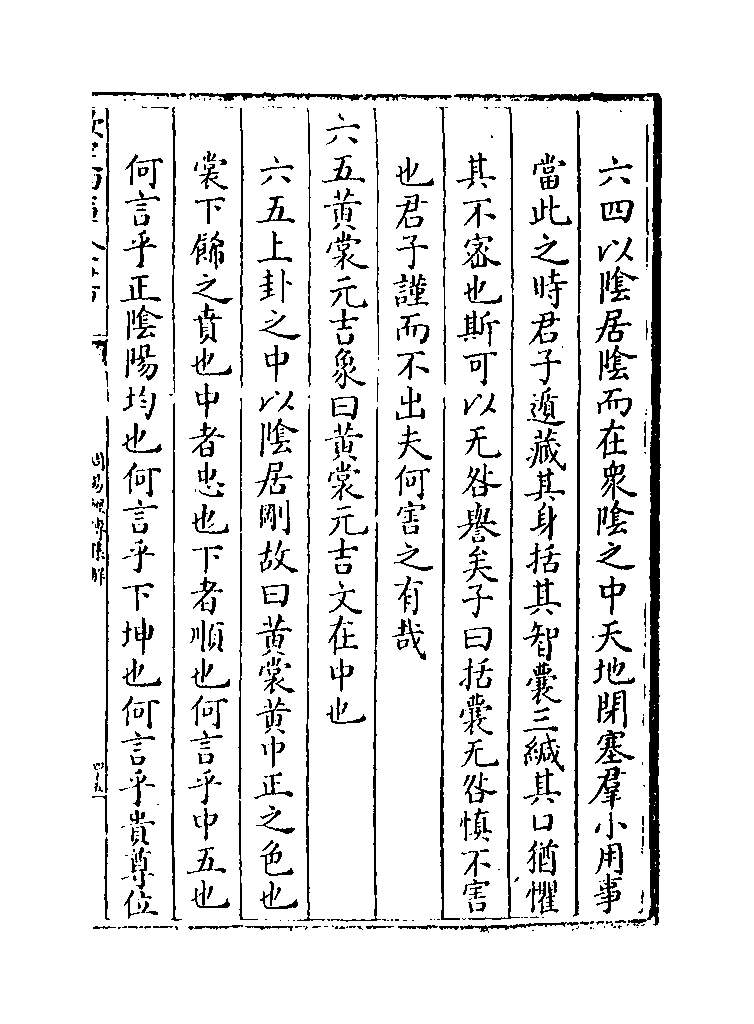 六四以陰居陰而在衆陰之中天地閉塞羣小用事
當此之時君子遁藏其身括其智囊三緘其口猶懼
其不密也斯可以无咎譽矣子曰括囊无咎慎不害
也君子謹而不出夫何害之有哉
六五黄裳元吉象曰黄裳元吉文在中也
六五上卦之中以陰居剛故曰黄裳黄中正之色也
裳下餙之賁也中者忠也下者順也何言乎中五也
何言乎正陰陽均也何言乎下坤也何言乎貴尊位